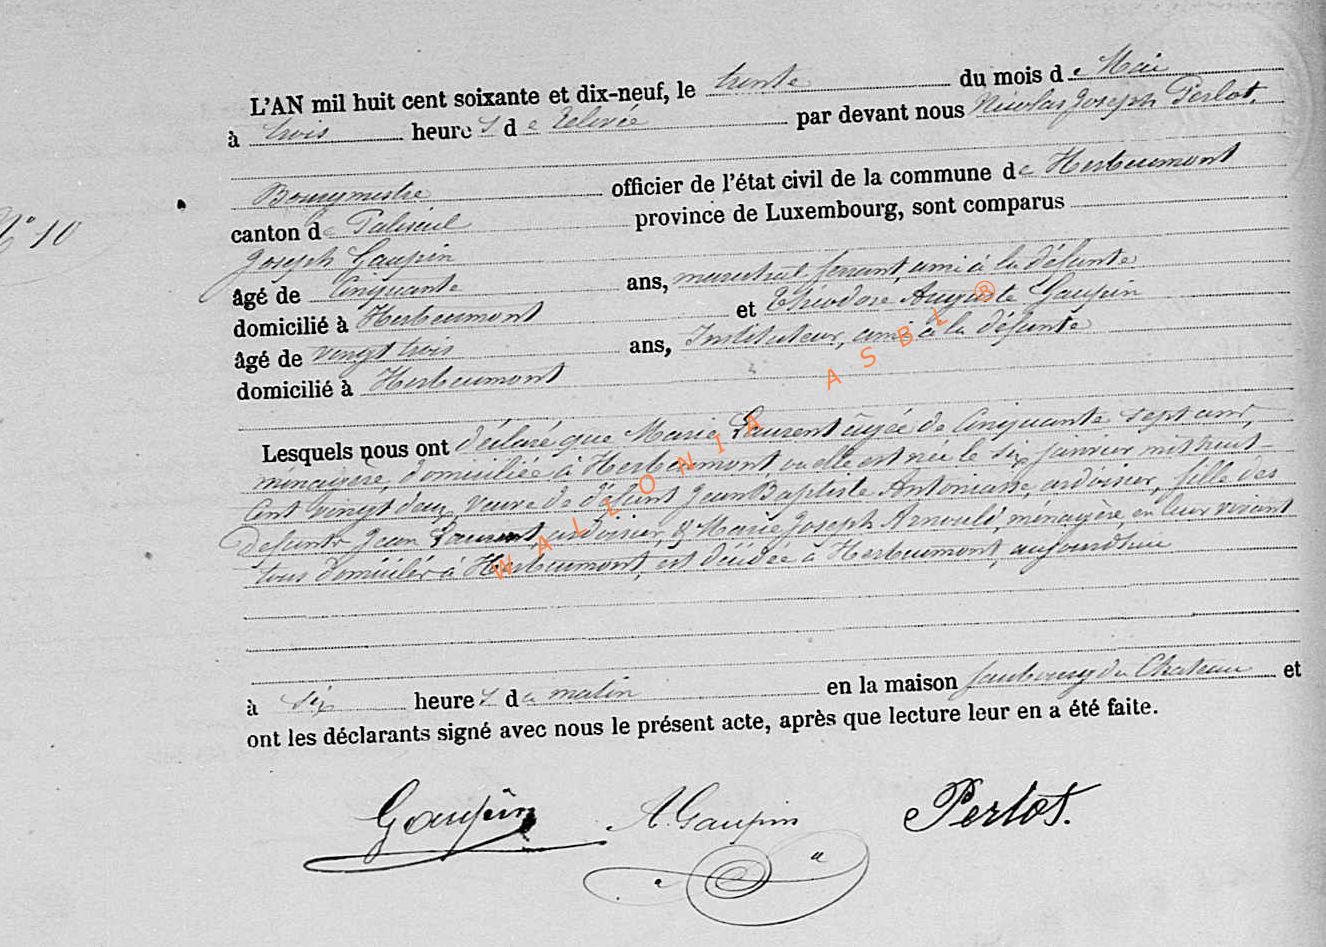 L'AN mil huit cent soixante et dix-neuf, le trente du mois de Mai
à trois heures de relevée par devant nous Nicolas Joseph Perlot,
Bourgmestre officier de l'état civil de la commune de Herbeumont
N° 10
canton de Paliseul province de Luxembourg, sont comparus
Joseph Gaupin
âgé de cinquante ans, maréchal ferrant, ami à la défunte
domicilié à Herbeumont et Théodore Auguste Gaupin
âgé de vingt trois ans, Instituteur, ami à la défunte
domicilié à Herbeumont
Lesquels nous ont déclaré que Marie Laurent âgée de cinquante sept ans,
ménagère, domiciliée à Herbeumont, où elle est née le six janvier mil huit
cent vingt deux, veuve de défunt Jean Baptiste Antoniasse, ardoisier, fille des
défunts Jean Laurent, ardoisier, & Marie Joseph Arnould, ménagère, en leur vivant
tous domiciliés à Herbeumont, est décédée à Herbeumont, aujourdhui
à six heures du matin en la maison faubourg du Chateau et
ont les déclarants signé avec nous le présent acte, après que lecture leur en a été faite.
Gaupin A. Gaupin Perlot.
WALLONIA ASBL ®